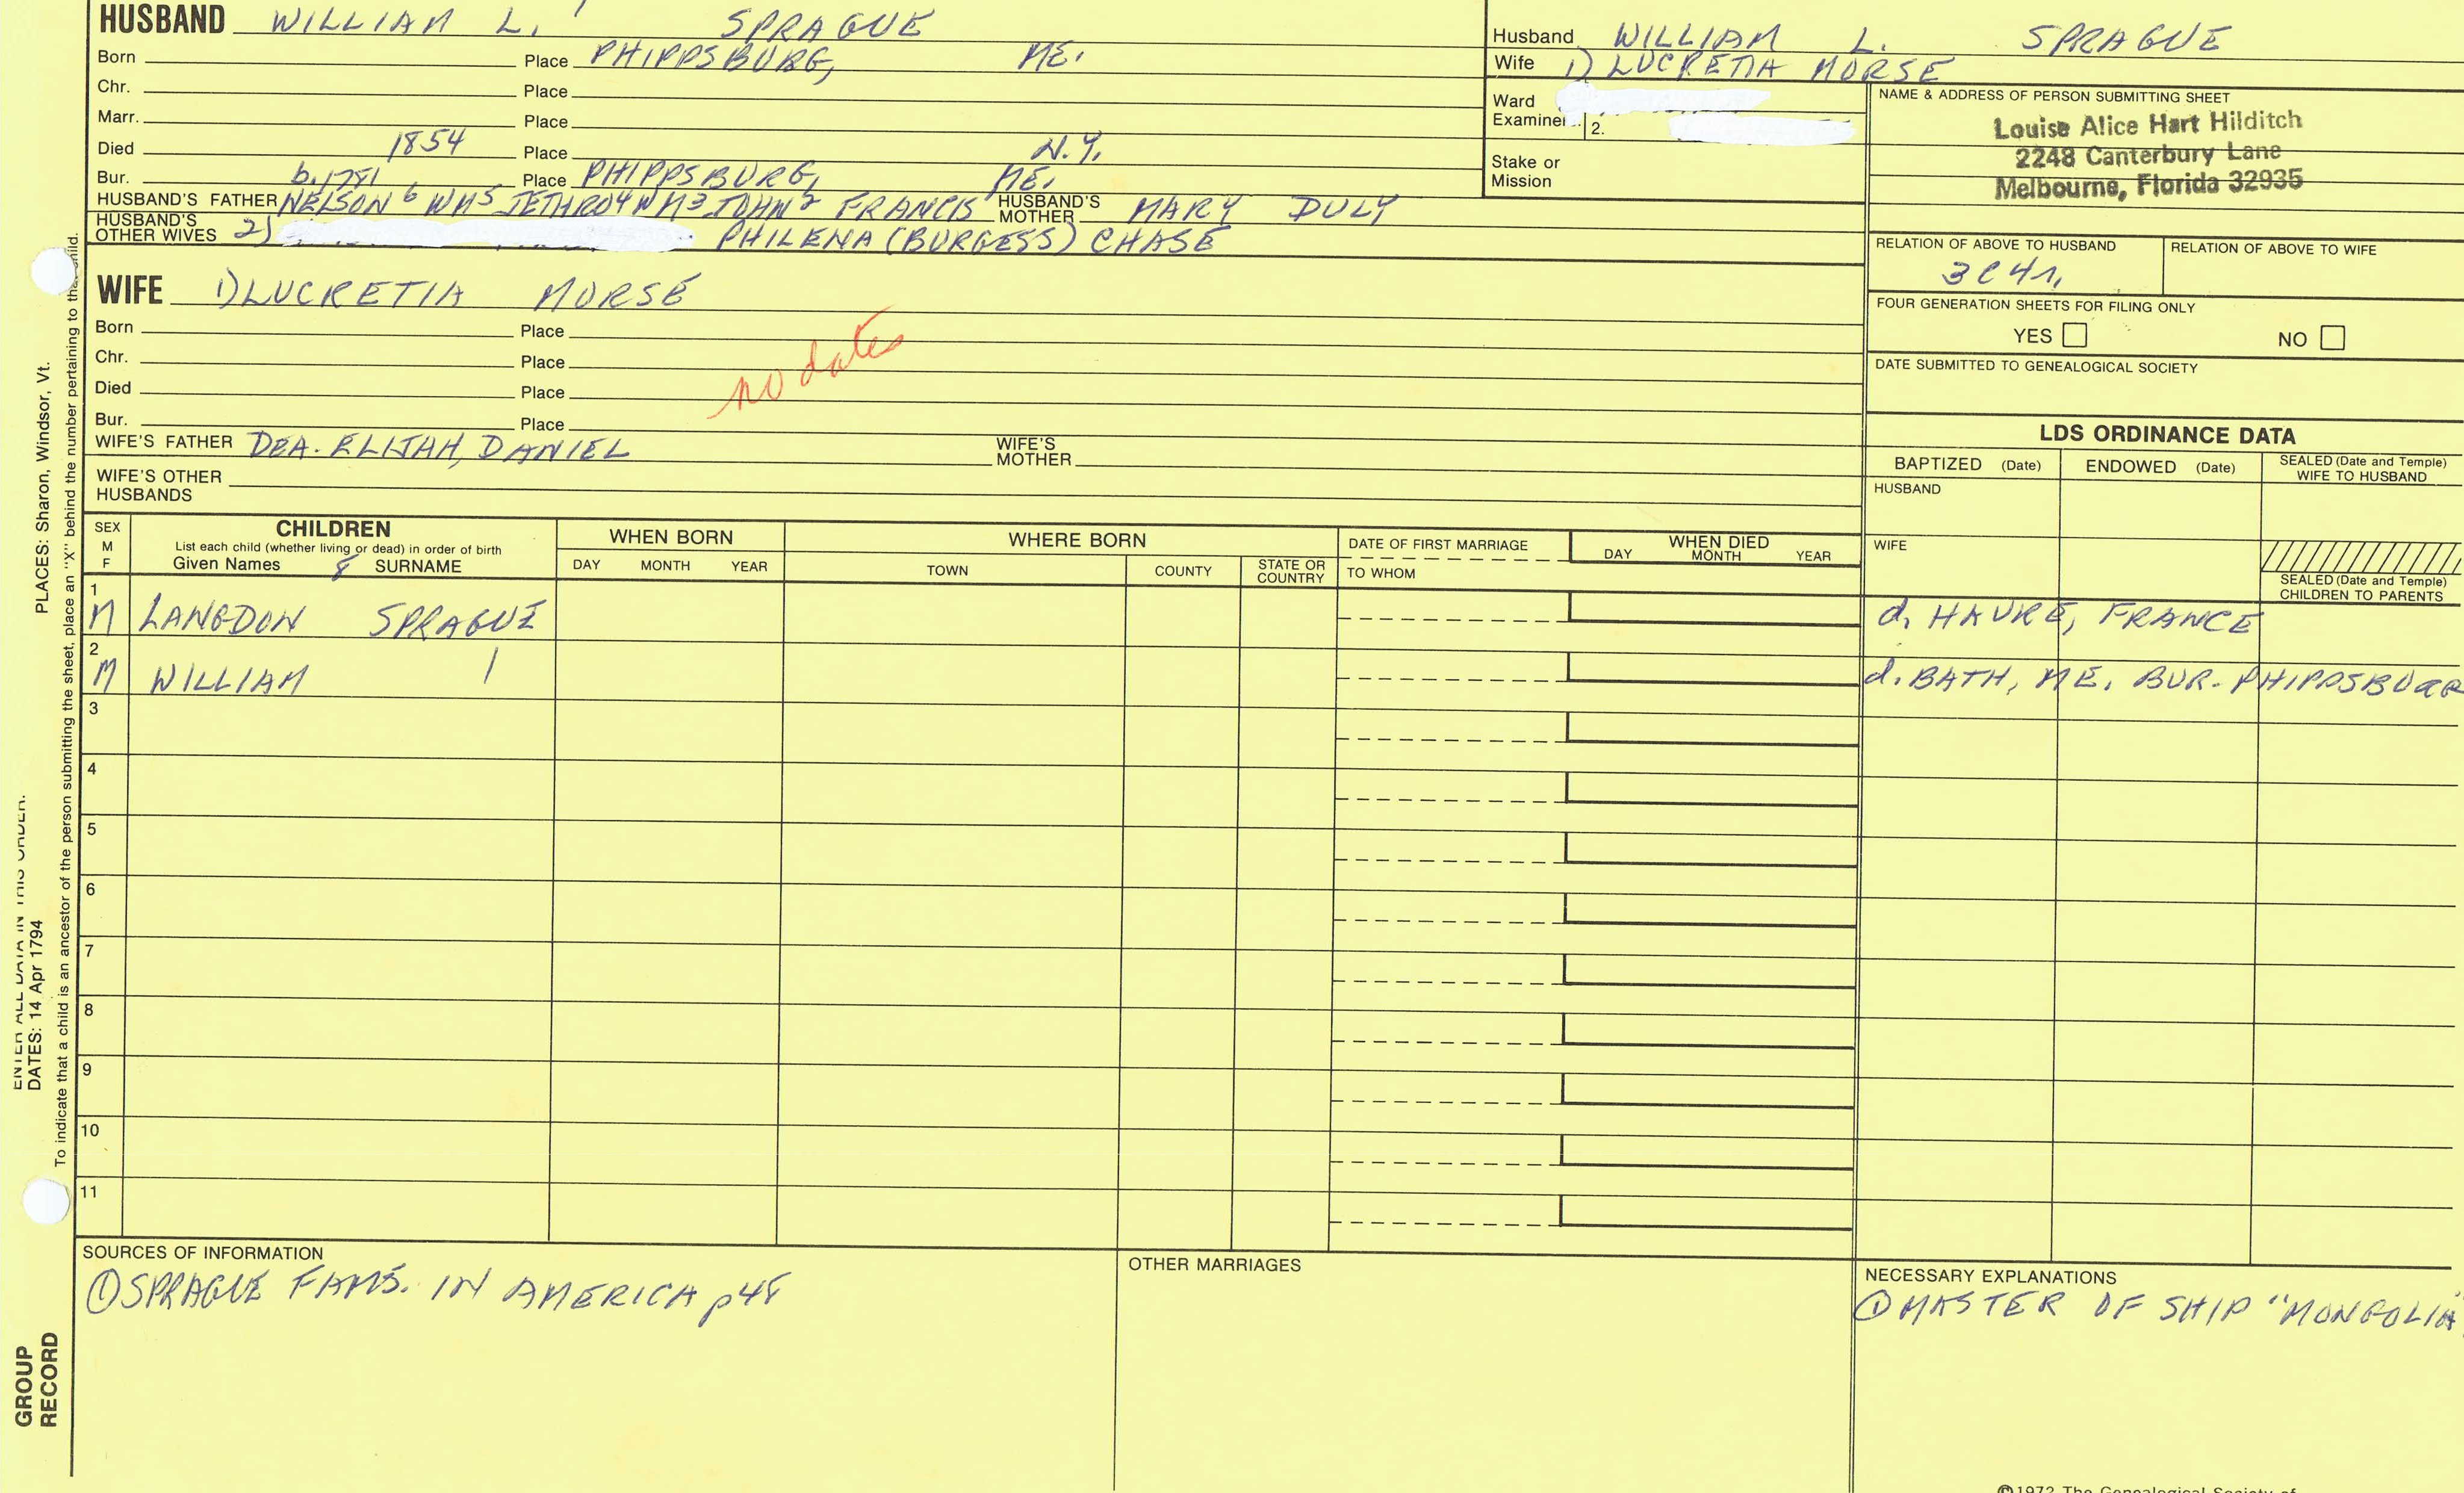 HUSBAND WILLIAM L. 7 SPRAGUE
Born Place PHIPPSBURG, ME.
Chr. Place
Marr. Place
Died 1854 Place N.Y.
Bur. Place PHIPPSBURG, ME.
HUSBAND'S FATHER NELSON 6 WM5 JETHRO4 WM3 JOHN2 FRANCIS' HUSBAND'S MOTHER MARY DULY
HUSBAND'S OTHER WIVES 2) PHILENA (BURGESS) CHASE
WIFE 1) LUCRETIA MORSE
Born Place
Chr. Place
Died Place
Bur. Place
no dates
WIFE'S FATHER DEA. ELIJAH, DANIEL WIFE'S MOTHER
WIFE'S OTHER HUSBANDS
Husband WILLIAM L. SPRAGUE
Wife 1) LUCRETIA MORSE
Ward
Examiner 2.
Stake or Mission
NAME & ADDRESS OF PERSON SUBMITTING SHEET
Louise Alice Hart Hilditch
2248 Canterbury Lane
Melbourne, Florida 32935
RELATION OF ABOVE TO HUSBAND RELATION OF ABOVE TO WIFE
FOUR GENERATION SHEETS FOR FILING ONLY
YES NO
DATE SUBMITTED TO GENEALOGICAL SOCIETY
LDS ORDINANCE DATA
BAPTIZED (Date) ENDOWED (Date) SEALED (Date and Temple) WIFE TO HUSBAND
HUSBAND
WIFE
SEALED (Date and Temple) CHILDREN TO PARENTS
SEX M F
CHILDREN
List each child (whether living or dead) in order of birth
Given Names 8 SURNAME
WHEN BORN
DAY MONTH YEAR
WHERE BORN
TOWN COUNTY STATE OR COUNTRY
DATE OF FIRST MARRIAGE
TO WHOM
WHEN DIED
DAY MONTH YEAR
1 M LANGDON SPRAGUE d. HAVRE, FRANCE
2 M WILLIAM d. BATH, ME. BUR. PHIPPSBURG
3
4
5
6
7
8
9
10
11
SOURCES OF INFORMATION
① SPRAGUE FAMS. IN AMERICA
OTHER MARRIAGES
NECESSARY EXPLANATIONS
① MASTER OF SHIP "MONGOLIA
©1972 The Genealogical Society of
PLACES: Sharon, Windsor, Vt.
ENTER ALL DATA IN THIS ORDER.
DATES: 14 Apr 1794
To indicate that a child is an ancestor of the person submitting the sheet, place an "X" behind the number pertaining to the child.
GROUP
RECORD